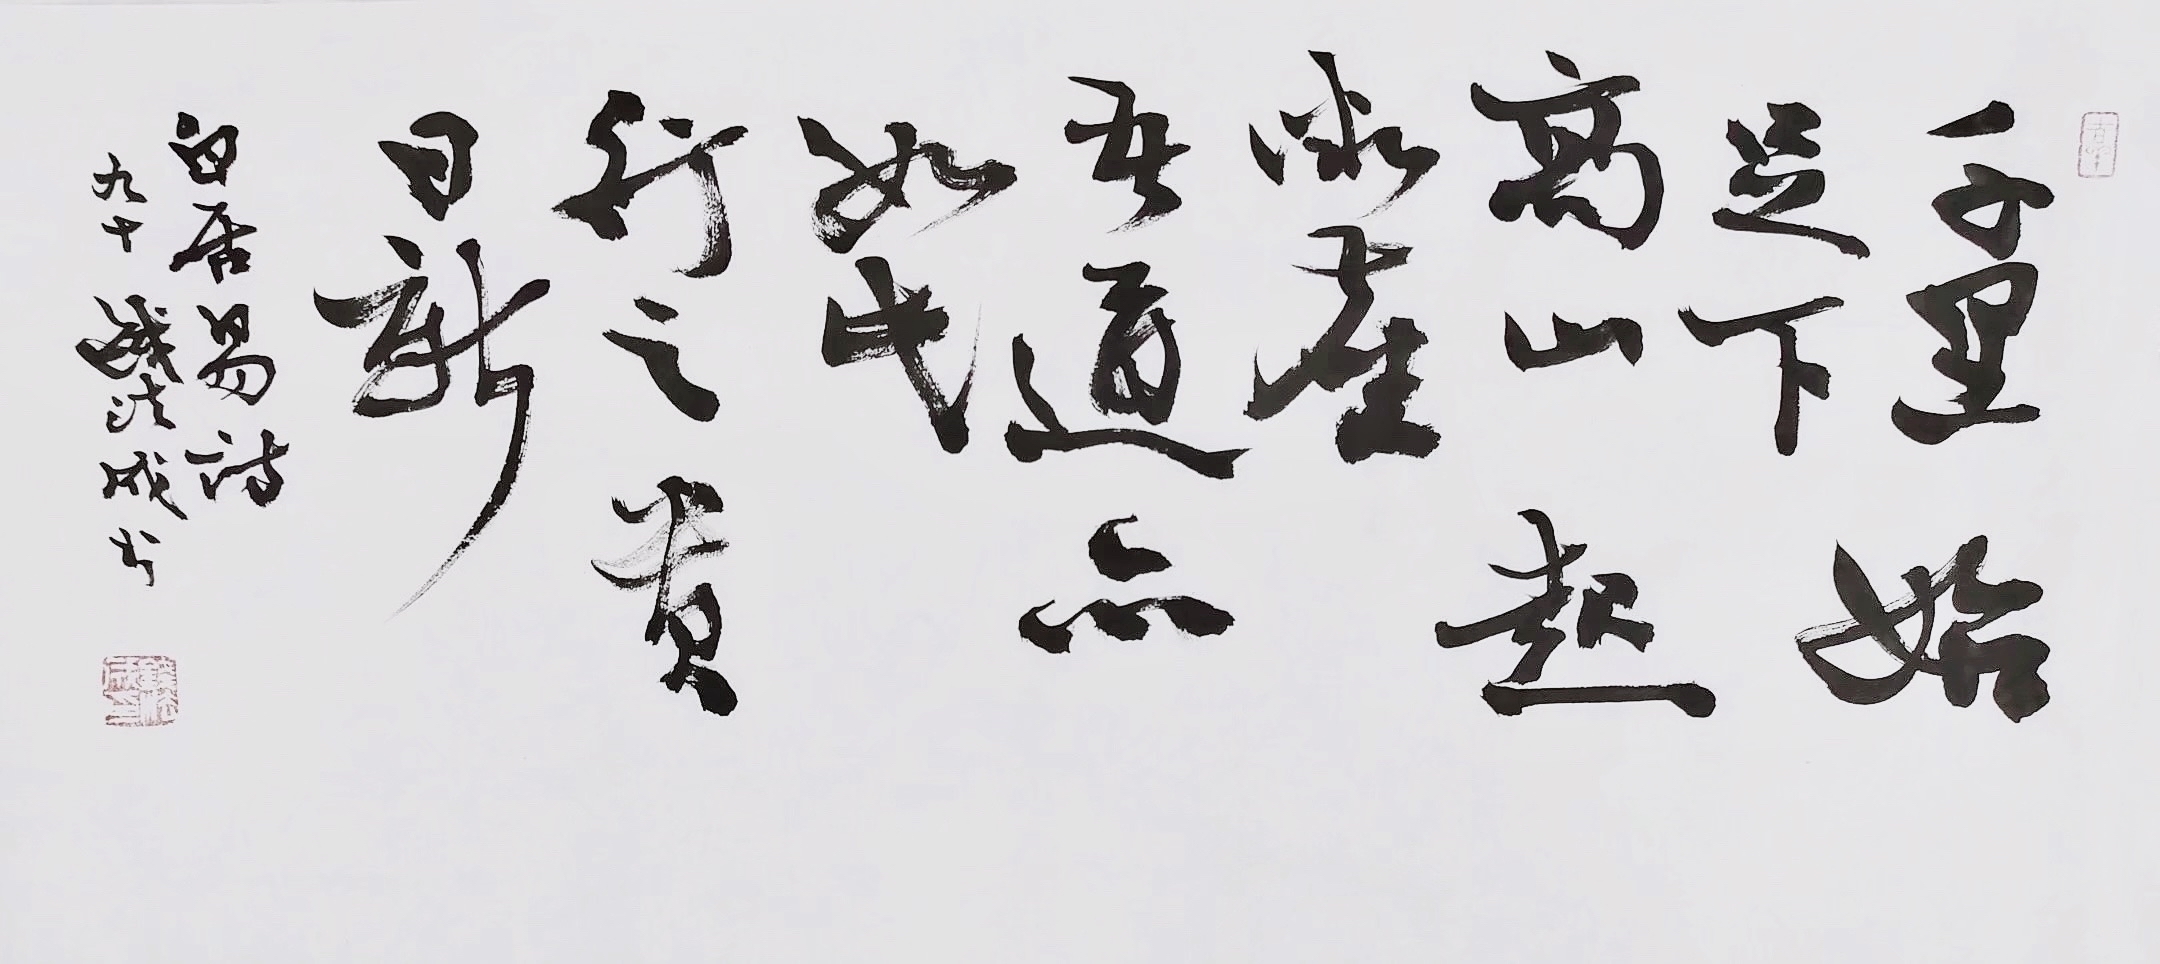 千里始
足下
高山起
微尘
吾道亦
如此
行之贵
日新
白居易诗
九十